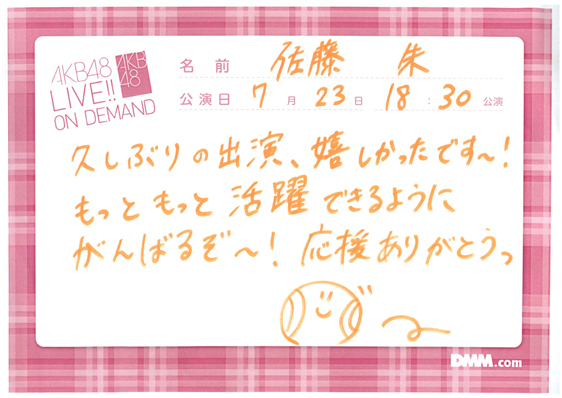 AKB48
LIVE!!
ON DEMAND
AKB
48
名前 佐藤 朱
公演日 7月23日 18:30公演
久しぶりの出演、嬉しかったです〜!
もっともっと活躍できるように
がんばるぞ〜! 応援ありがとうっ
DMM.com